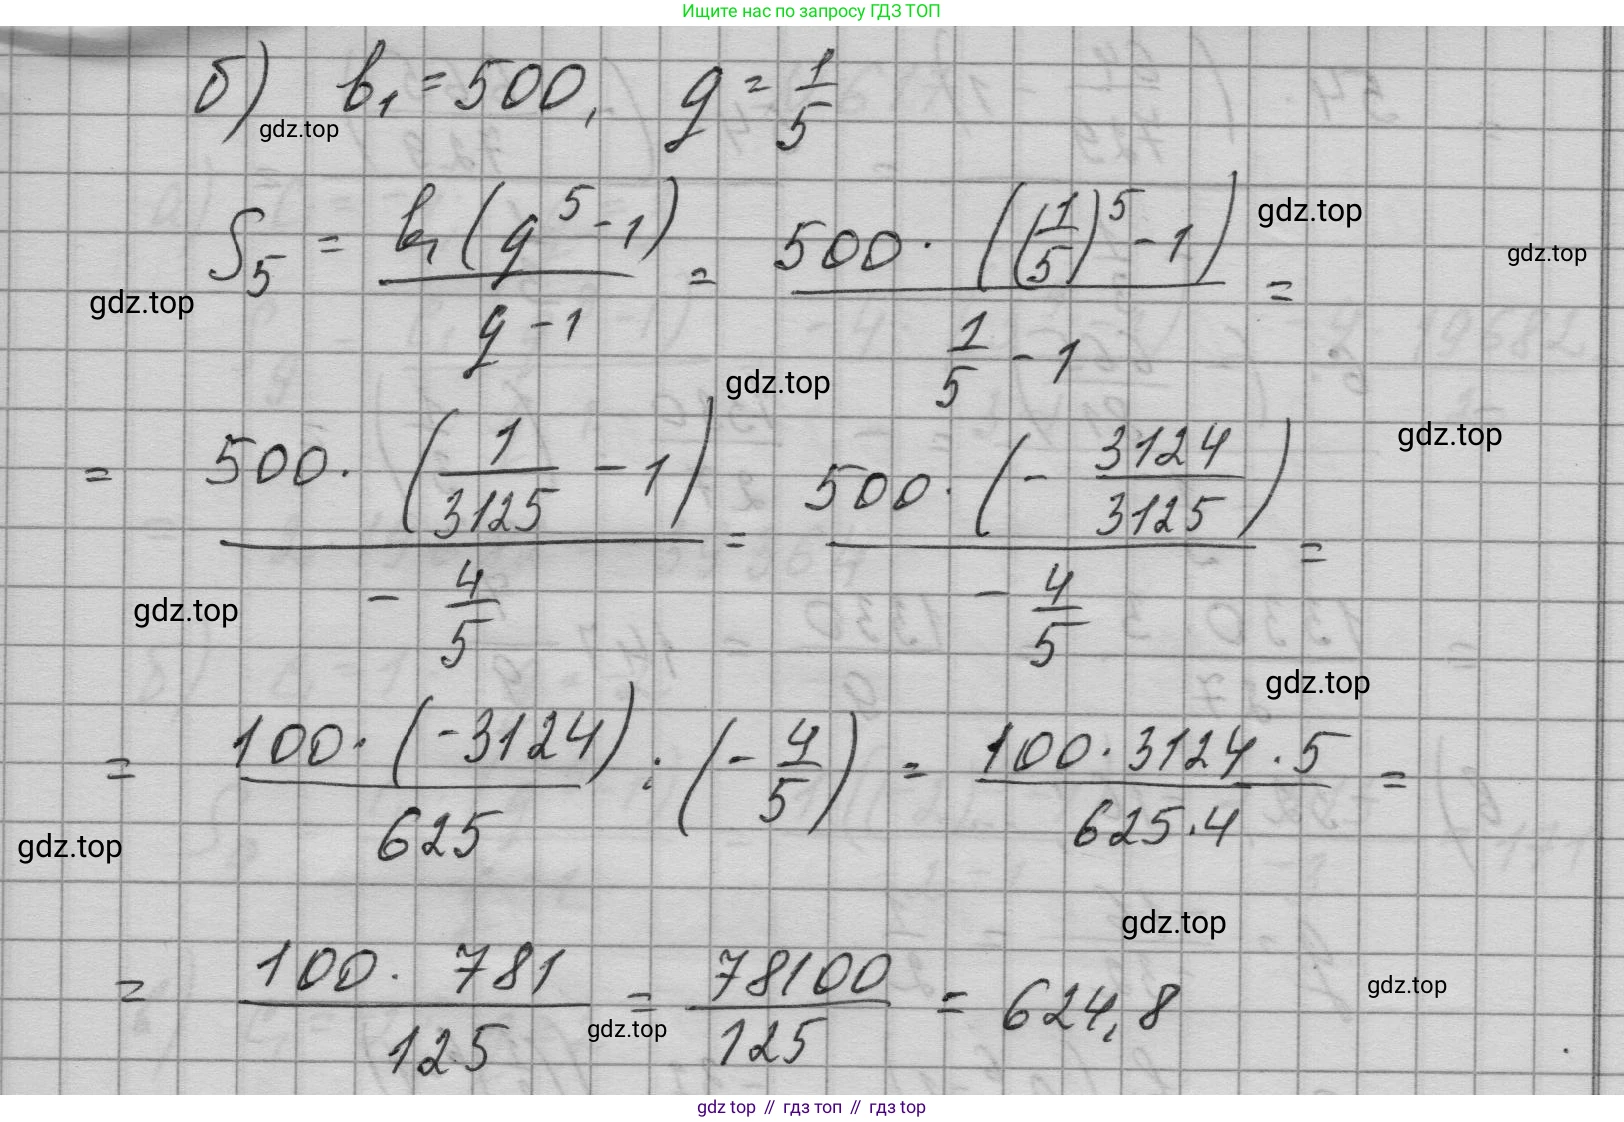 Ищите нас по запросу ГДЗ ТОП
б) b₁ = 500, q = 1/5
gdz.top
S₅ = b₁(q⁵ - 1)/(q - 1) = 500 · ((1/5)⁵ - 1)/(1/5 - 1) =
gdz.top
gdz.top
gdz.top
gdz.top
= 500 · (1/3125 - 1)/(- 4/5) = 500 · (- 3124/3125)/(- 4/5) =
gdz.top
gdz.top
gdz.top
= 100 · (-3124)/625 : (- 4/5) = 100 · 3124 · 5/625 · 4 =
gdz.top
gdz.top
= 100 · 781/125 = 78100/125 = 624,8
gdz.top
gdz.top
gdz top // гдз топ // гдз top